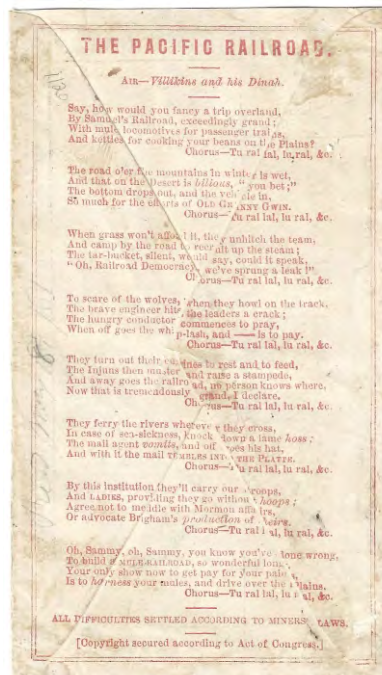 THE PACIFIC RAILROAD.
AIR—Villikins and his Dinah.
Say, how would you fancy a trip overland,
By Samuel's Railroad, exceedingly grand;
With mule locomotives for passenger trains,
And kettles for cooking your beans on the Plains?
Chorus—Tu ral lal, lu ral, &c.
The road o'er the mountains in winter is wet,
And that on the Desert is bilious, "you bet;"
The bottom drops out, and the vehicle in,
So much for the efforts of OLD GRANNY GWIN.
Chorus—Tu ral lal, lu ral, &c.
When grass won't afford it, they unhitch the team,
And camp by the road to recruit up the steam;
The tar-bucket, silent, would say, could it speak,
"Oh, Railroad Democracy, we've sprung a leak!"
Chorus—Tu ral lal, lu ral, &c.
To scare of the wolves, when they howl on the track,
The brave engineer hits the leaders a crack;
The hungry conductor commences to pray,
When off goes the whip-lash, and —— is to pay.
Chorus—Tu ral lal, lu ral, &c.
They turn out their engines to rest and to feed,
The Injuns then muster and raise a stampede,
And away goes the railroad, no person knows where,
Now that is tremendously grand, I declare.
Chorus—Tu ral lal, lu ral, &c.
They ferry the rivers wherever they cross,
In case of sea-sickness, knock down a lame hoss;
The mail agent vomits, and off goes his hat,
And with it the mail TUMBLES INTO THE PLATTE.
Chorus—Tu ral lal, lu ral, &c.
By this institution they'll carry our troops,
And LADIES, providing they go without hoops;
Agree not to meddle with Mormon affairs,
Or advocate Brigham's production of heirs.
Chorus—Tu ral lal, lu ral, &c.
Oh, Sammy, oh, Sammy, you know you've done wrong,
To build a MULE RAILROAD, so wonderful long,
Your only show now to get pay for your
Is to harness your mules, and drive over the Plains.
Chorus—Tu ral lal, lu ral, &c.
ALL DIFFICULTIES SETTLED ACCORDING TO MINERS' LAWS.
[Copyright secured according to Act of Congress.]